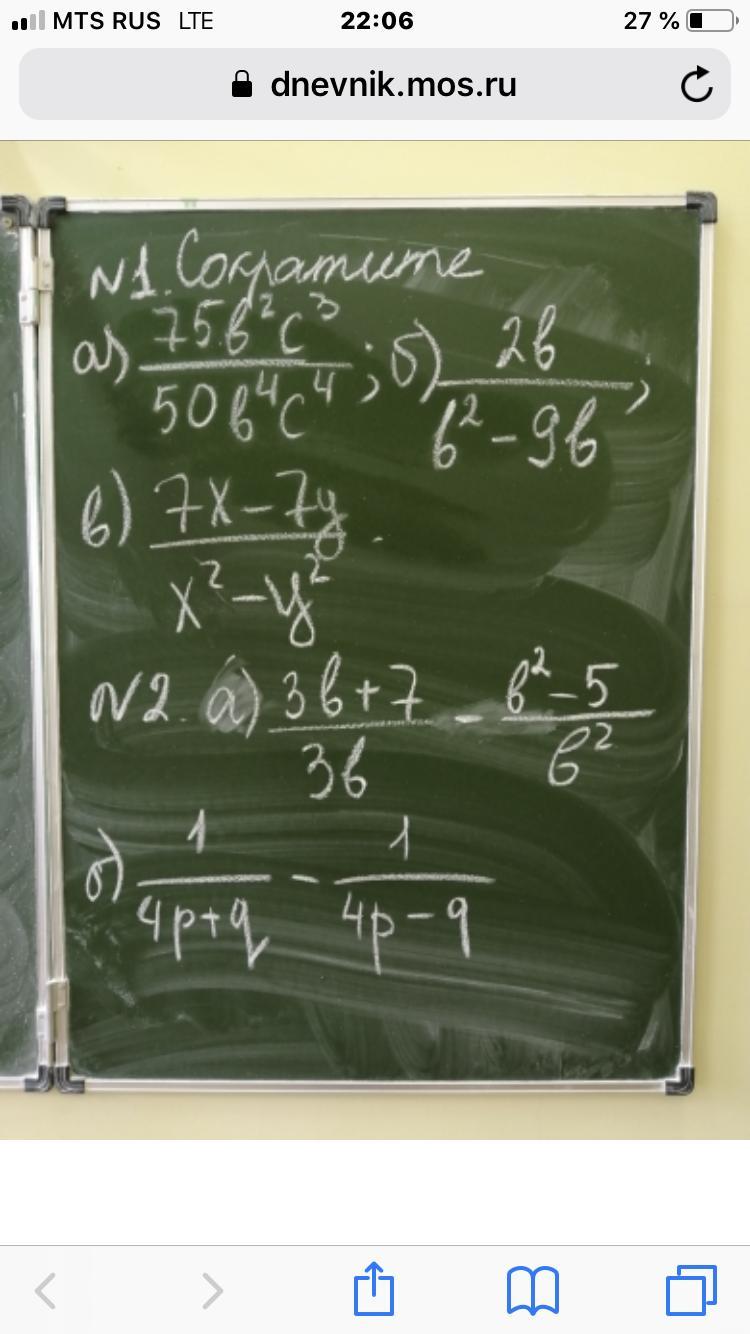 MTS RUS LTE 22:06 27 %
dnevnik.mos.ru
N1. Сократите
а) 75b²c³ / 50b⁴c⁴ ; б) 2b / b² - 9b ;
в) 7x - 7y / x² - y² .
N2. а) 3b + 7 / 3b - b² - 5 / b²
б) 1 / 4p + q - 1 / 4p - q